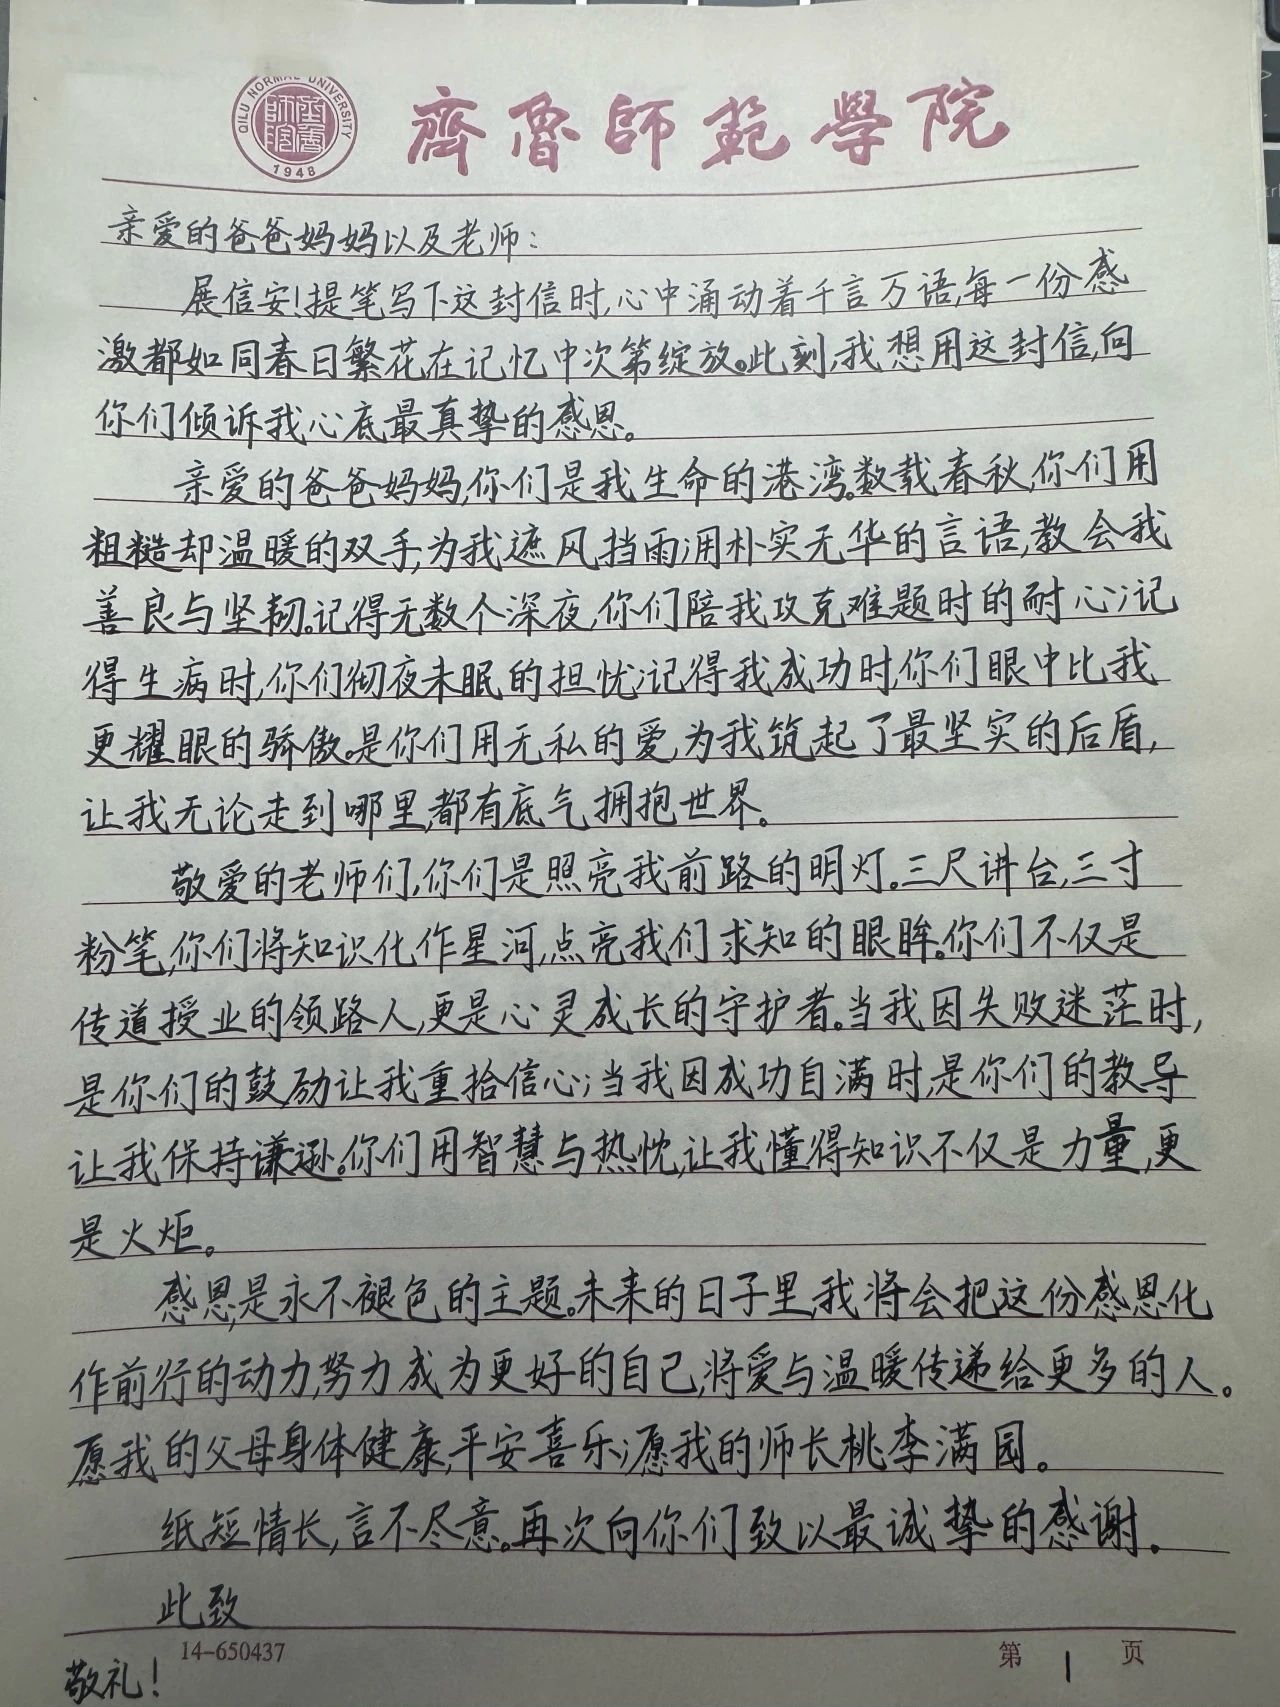 QILU NORMAL UNIVERSITY
1948
齊魯師範學院
亲爱的爸爸妈妈以及老师：
展信安！提笔写下这封信时，心中涌动着千言万语，每一份感
激都如同春日繁花在记忆中次第绽放。此刻，我想用这封信，向
你们倾诉我心底最真挚的感恩。
亲爱的爸爸妈妈，你们是我生命的港湾。数载春秋，你们用
粗糙却温暖的双手，为我遮风挡雨；用朴实无华的言语，教会我
善良与坚韧。记得无数个深夜，你们陪我攻克难题时的耐心；记
得生病时，你们彻夜未眠的担忧；记得我成功时，你们眼中比我
更耀眼的骄傲。是你们用无私的爱，为我筑起了最坚实的后盾，
让我无论走到哪里，都有底气拥抱世界。
敬爱的老师们，你们是照亮我前路的明灯。三尺讲台，三寸
粉笔，你们将知识化作星河，点亮我们求知的眼眸。你们不仅是
传道授业的领路人，更是心灵成长的守护者。当我因失败迷茫时，
是你们的鼓励让我重拾信心；当我因成功自满时，是你们的教导
让我保持谦逊。你们用智慧与热忱，让我懂得知识不仅是力量，更
是火炬。
感恩，是永不褪色的主题。未来的日子里，我将会把这份感恩化
作前行的动力，努力成为更好的自己，将爱与温暖传递给更多的人。
愿我的父母身体健康，平安喜乐；愿我的师长桃李满园。
纸短情长，言不尽意。再次向你们致以最诚挚的感谢。
此致
14-650437 第 1 页
敬礼！